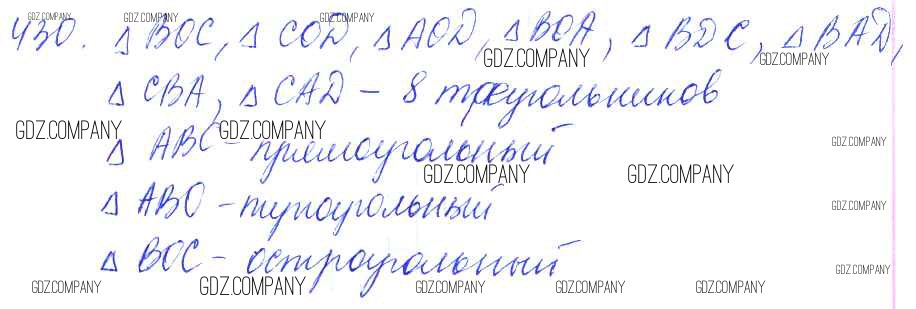 430. Δ BOC, Δ COD, Δ AOD, Δ BOA, Δ BDC, Δ BAD,
Δ CBA, Δ CAD – 8 треугольников
Δ ABC – прямоугольный
Δ ABO – тупоугольный
Δ BOC – остроугольный
GDZ.COMPANY GDZ.COMPANY GDZ.COMPANY
GDZ.COMPANY GDZ.COMPANY
GDZ.COMPANY GDZ.COMPANY GDZ.COMPANY
GDZ.COMPANY GDZ.COMPANY
GDZ.COMPANY
GDZ.COMPANY
GDZ.COMPANY GDZ.COMPANY GDZ.COMPANY GDZ.COMPANY GDZ.COMPANY